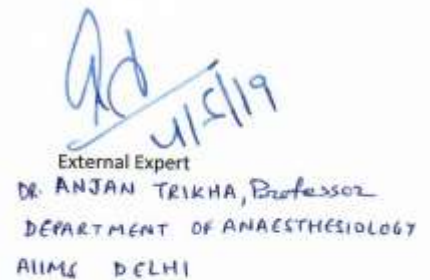 4/5/19
External Expert
DR. ANJAN TRIKHA, Professor
DEPARTMENT OF ANAESTHESIOLOGY
AIIMS DELHI